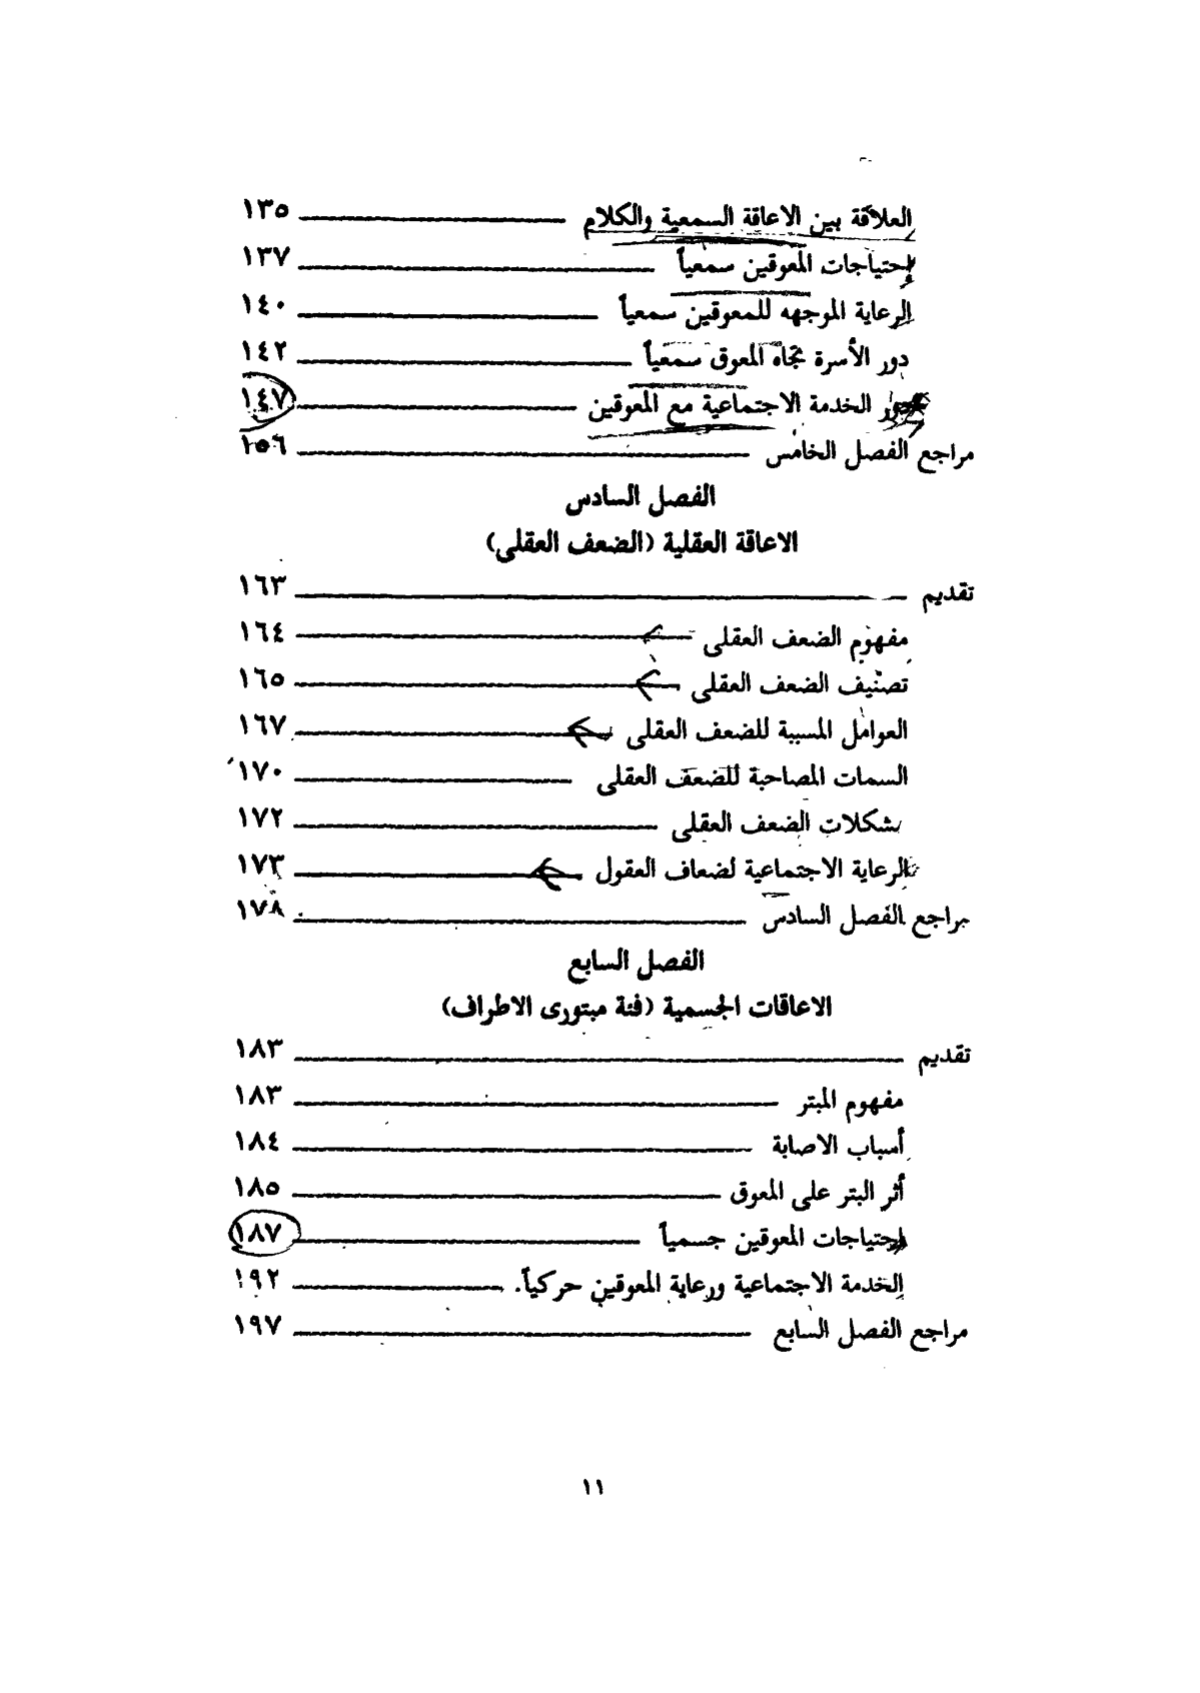 العلاقة بين الاعاقة السمعية والكلام ١٣٥
إحتياجات المعوقين سمعياً ١٣٧
الرعاية الموجهه للمعوقين سمعياً ١٤٠
دور الأسرة تجاه المعوق سمعياً ١٤٢
دور الخدمة الاجتماعية مع المعوقين ١٤٧
مراجع الفصل الخامس ١٥٦
الفصل السادس
الاعاقة العقلية (الضعف العقلى)
تقديم ١٦٣
مفهوم الضعف العقلى ١٦٤
تصنيف الضعف العقلى ١٦٥
العوامل المسببة للضعف العقلى ١٦٧
السمات المصاحبة للضعف العقلى ١٧٠
مشكلات الضعف العقلى ١٧٢
الرعاية الاجتماعية لضعاف العقول ١٧٣
مراجع الفصل السادس ١٧٨
الفصل السابع
الاعاقات الجسمية (فئة مبتورى الاطراف)
تقديم ١٨٣
مفهوم المبتر ١٨٣
أسباب الاصابة ١٨٤
أثر البتر على المعوق ١٨٥
إحتياجات المعوقين جسمياً ١٨٧
الخدمة الاجتماعية ورعاية المعوقين حركياً. ١٩٢
مراجع الفصل السابع ١٩٧
١١